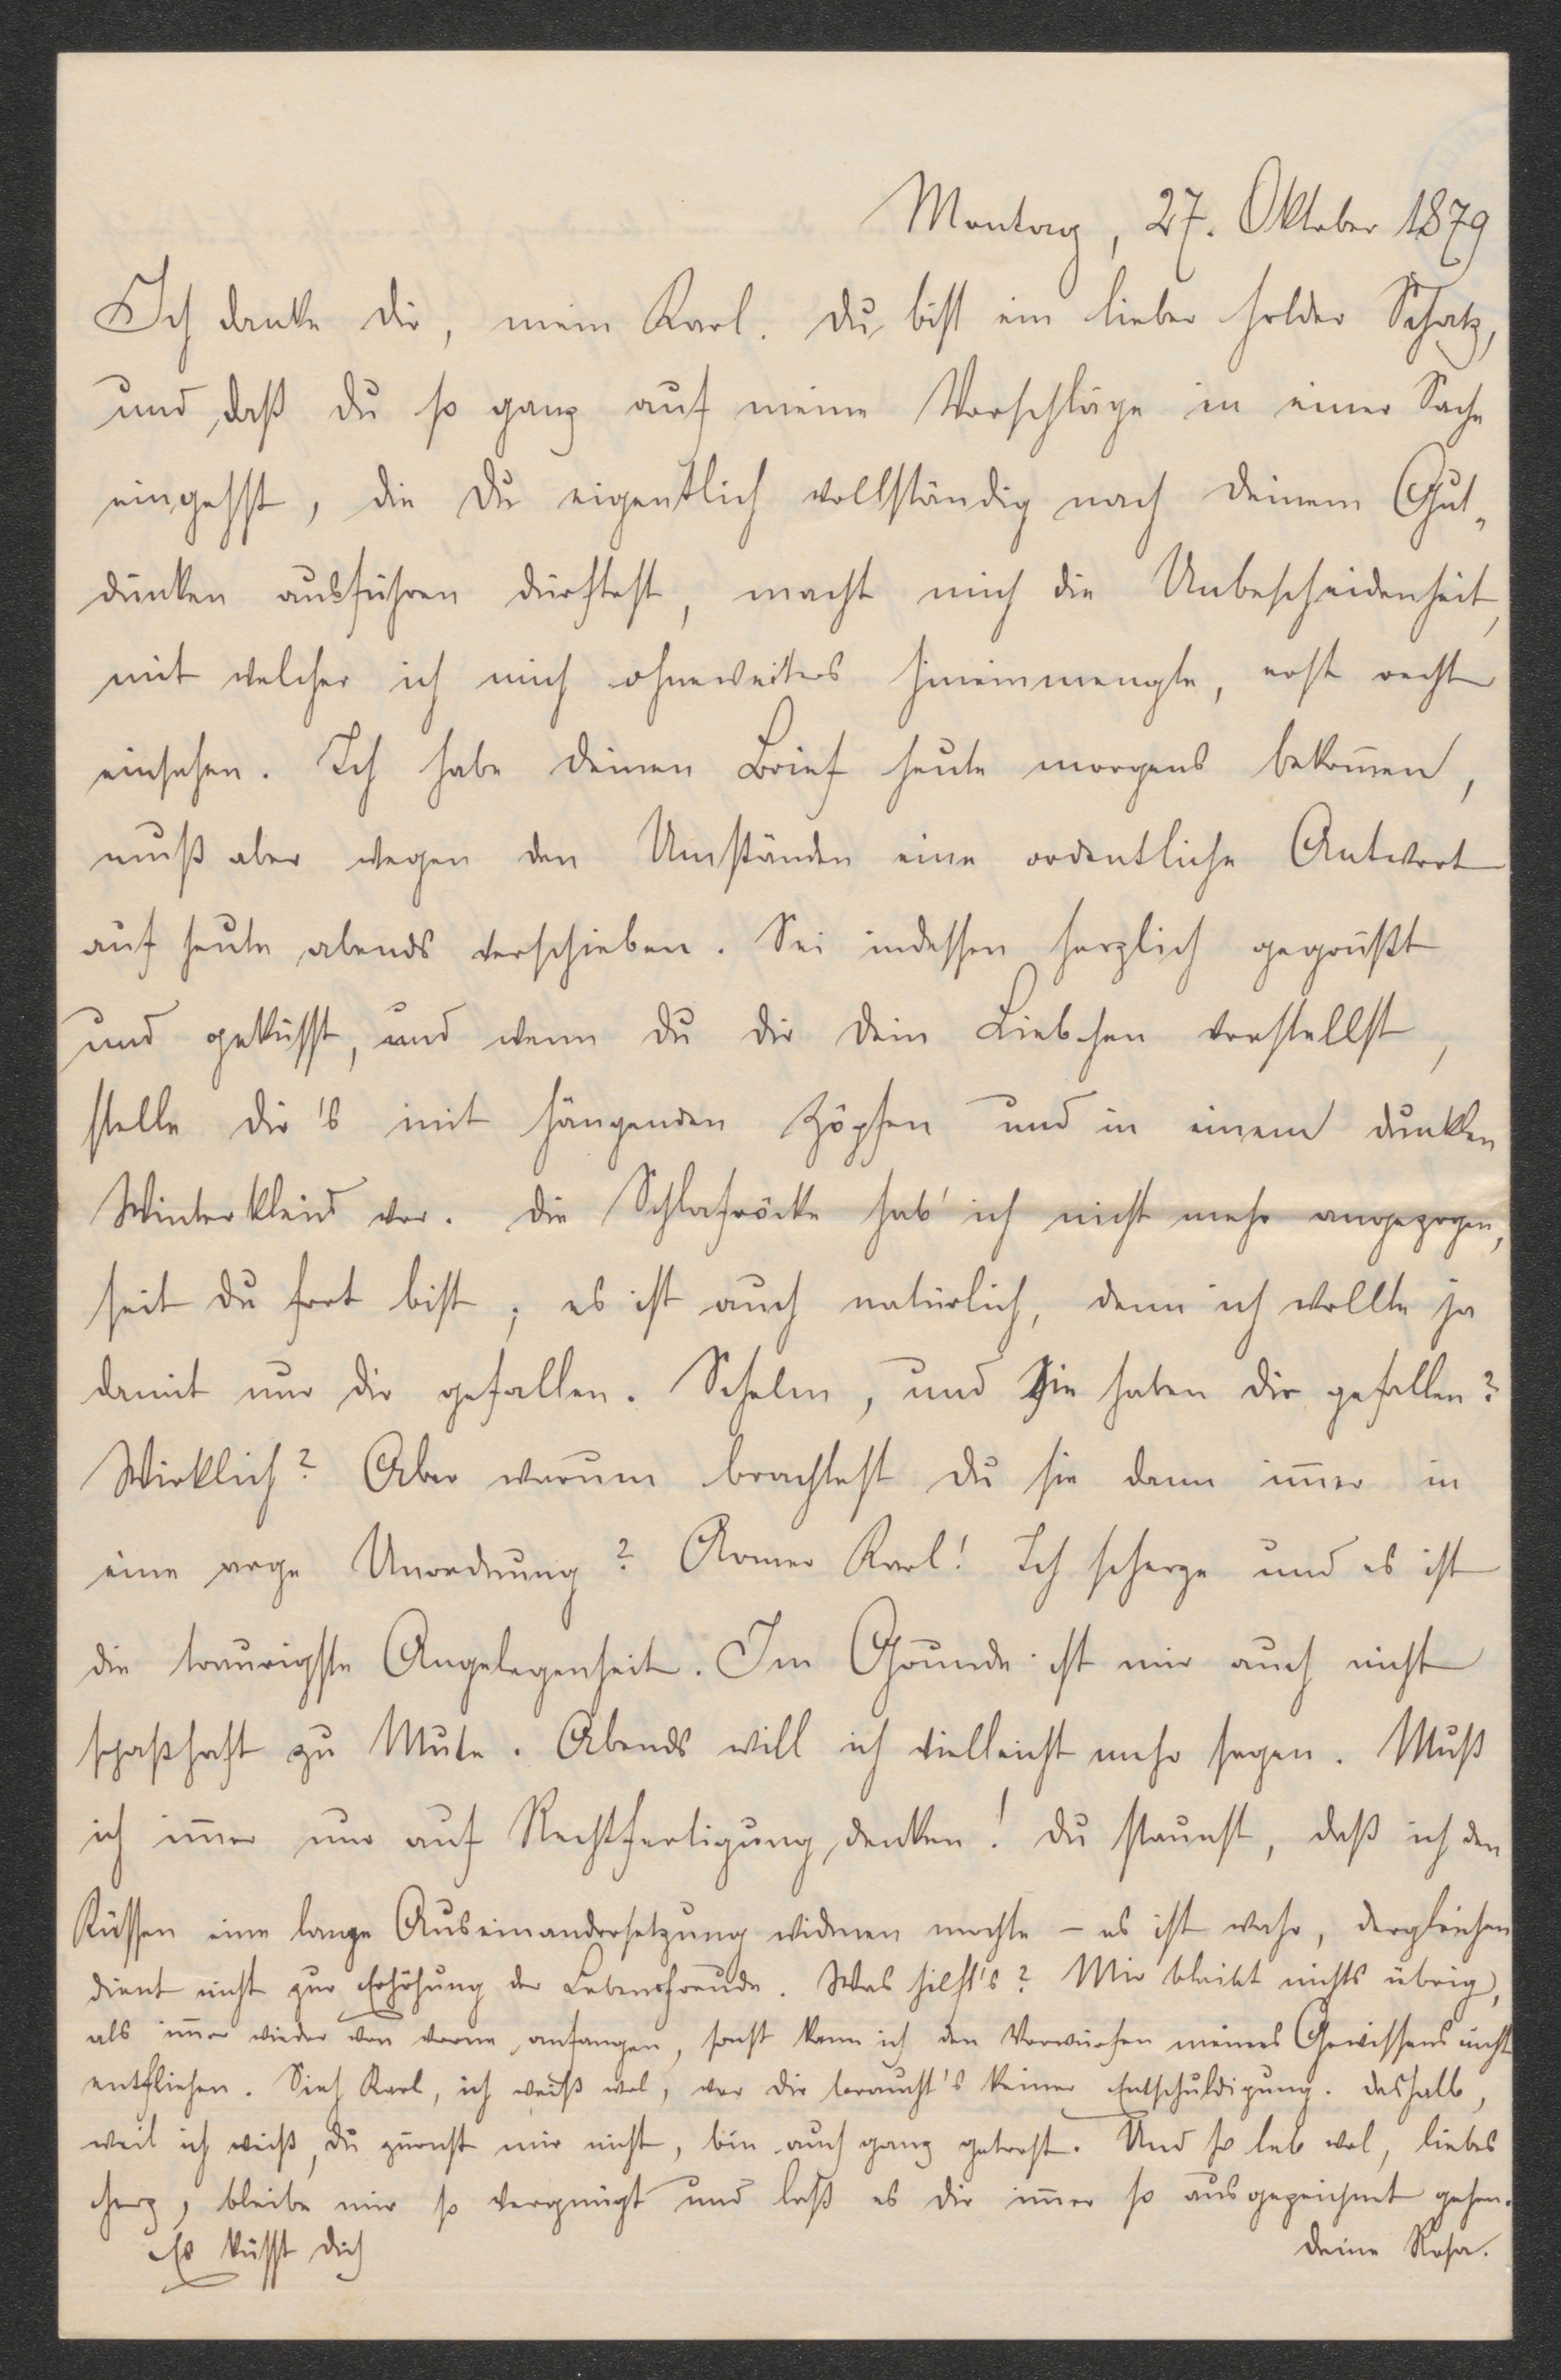 Montag, 27. Oktober 1879
Ich danke dir, mein Karl. Du bist ein lieber holder Schatz,
und daß du so ganz auf meine Vorschläge in einer Sache
eingehst, die du eigentlich vollständig nach deinem Gut„
dünken ausführen dürftest, macht mich die Unbescheidenheit,
mit welcher ich mich ohneweiters hineinmengte, erst recht
einsehen. Ich habe deinen Brief heute morgens bekom̅en,
muß aber wegen den Umständen eine ordentliche Antwort
auf heute abends verschieben. Sei indessen herzlich gegrüßt
und geküsst, und wenn du dir dein Liebchen vorstellst,
stelle dir's mit hängenden Zöpfen und in einem dunklen
Winterkleid vor. Die Schlafröcke hab' ich nicht mehr angezogen,
seit du fort bist; es ist auch natürlich, denn ich wollte ja
damit nur dir gefallen. Schelm, und sie haben dir gefallen?
Wirklich? Aber warum brachtest du sie dann im̅er in
eine arge Unordnung? Armer Karl! Ich scherze und es ist
die traurigste Angelegenheit. Im Grunde ist mir auch nicht
spaßhaft zu Mute. Abends will ich vielleicht mehr sagen. Muß
ich im̅er nur auf Rechtfertigung denken! Du staunst, daß ich den
Küssen eine lange Auseinandersetzung widmen mochte – es ist wahr, dergleichen
dient nicht zur Erhöhung der Lebensfreude. Was hilft's? Mir bleibt nichts übrig,
als im̅er wieder von vorne anfangen, sonst kann ich den Vorwürfen meines Gewissens nicht
entfliehen. Sieh Karl, ich weiß wol, vor dir braucht's keiner Entschuldigung. Deshalb,
weil ich weiß, du zürnst mir nicht, bin auch ganz getrost. Und so leb wol, liebes
Herz, bleibe mir so vergnügt und laß es dir im̅er so ausgezeichnet gehen.
Es küsst dich deine Rosa.